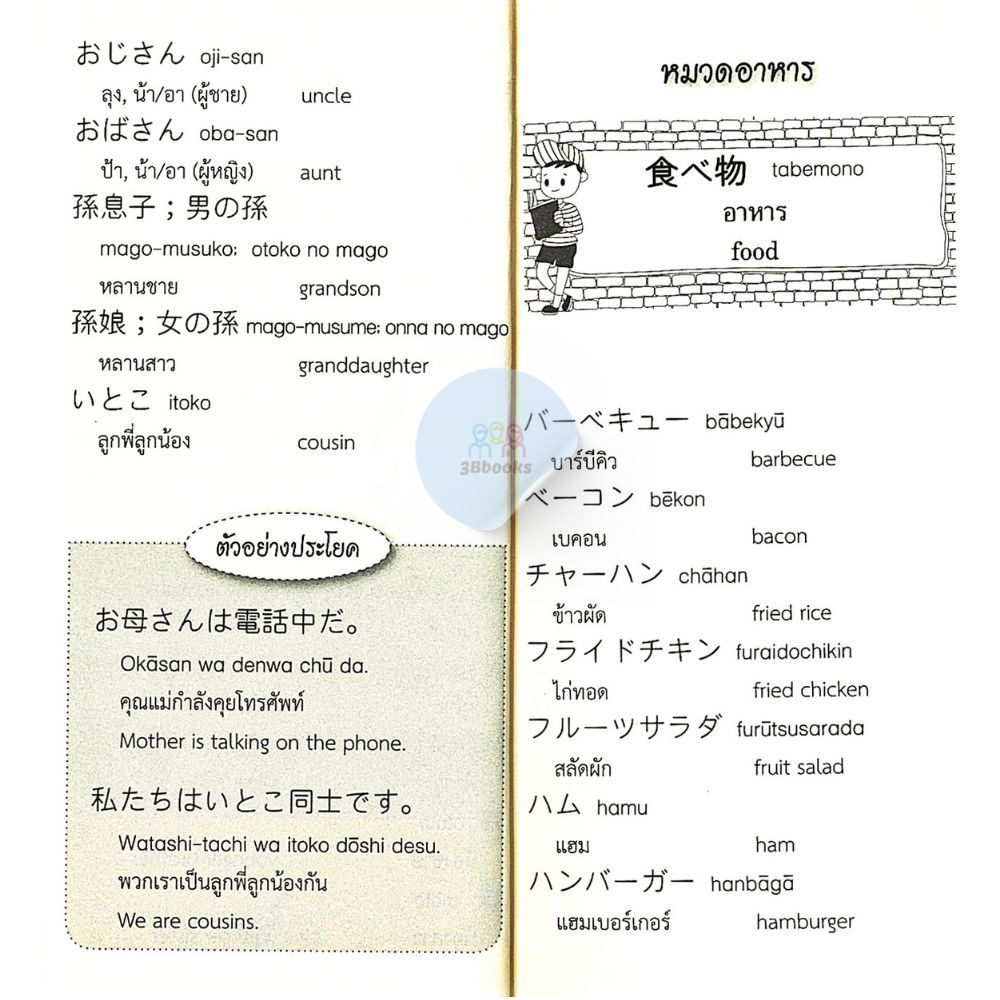 おじさん oji-san
ลุง, น้า/อา (ผู้ชาย) uncle
おばさん oba-san
ป้า, น้า/อา (ผู้หญิง) aunt
孫息子；男の孫
mago-musuko; otoko no mago
หลานชาย grandson
孫娘；女の孫 mago-musume; onna no mago
หลานสาว granddaughter
いとこ itoko
ลูกพี่ลูกน้อง cousin
ตัวอย่างประโยค
お母さんは電話中だ。
Okāsan wa denwa chū da.
คุณแม่กำลังคุยโทรศัพท์
Mother is talking on the phone.
私たちはいとこ同士です。
Watashi-tachi wa itoko dōshi desu.
พวกเราเป็นลูกพี่ลูกน้องกัน
We are cousins.
หมวดอาหาร
食べ物 tabemono
อาหาร
food
バーベキュー bābekyū
บาร์บีคิว barbecue
ベーコン bēkon
เบคอน bacon
チャーハン chāhan
ข้าวผัด fried rice
フライドチキン furaidochikin
ไก่ทอด fried chicken
フルーツサラダ furūtsusarada
สลัดผัก fruit salad
ハム hamu
แฮม ham
ハンバーガー hanbāgā
แฮมเบอร์เกอร์ hamburger
3Bbooks